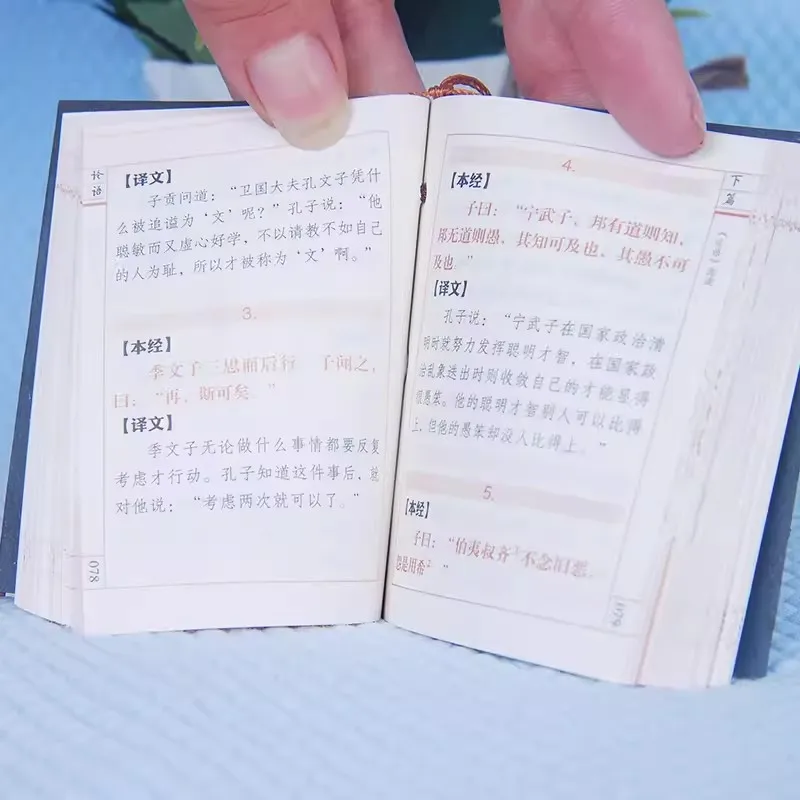 论语
【译文】
子贡问道：“卫国大夫孔文子凭什
么被追谥为‘文’呢？”孔子说：“他
聪敏而又虚心好学，不以请教不如自己
的人为耻，所以才被称为‘文’啊。”
3.
【本经】
季文子三思而后行。子闻之，
曰：“再，斯可矣。”
【译文】
季文子无论做什么事情都要反复
考虑才行动。孔子知道这件事后，就
对他说：“考虑两次就可以了。”
078
下篇
4.
【本经】
子曰：“宁武子，邦有道则知，
邦无道则愚，其知可及也，其愚不可
及也。”
【译文】
孔子说：“宁武子在国家政治清
明时就努力发挥聪明才智，在国家政
治乱象迭出时则收敛自己的才能显得
很愚笨。他的聪明才智别人可以比得
上，但他的愚笨却没人比得上。”
5.
【本经】
子曰：“伯夷叔齐¹不念旧恶，
怨是用希²。”
079